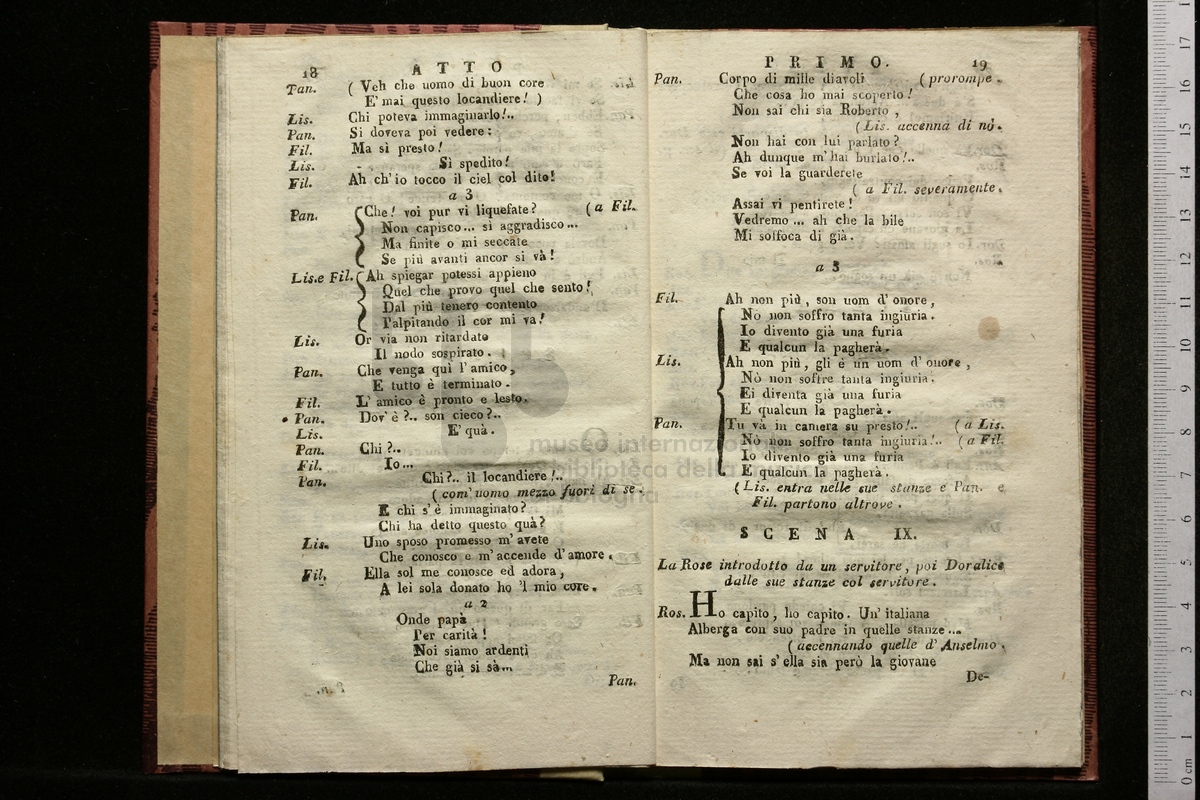 18 ATTO
Pan. ( Veh che uomo di buon core
E' mai questo locandiere! )
Lis. Chi poteva immaginarlo!..
Pan. Si doveva poi vedere:
Fil. Ma sì presto!
Lis. Sì spedito!
Fil. Ah ch' io tocco il ciel col dito!
a 3
Pan. Che! voi pur vi liquefate? (a Fil.
Non capisco... si aggradisco...
Ma finite o mi seccate
Se più avanti ancor si và!
Lis.e Fil. Ah spiegar potessi appieno
Quel che provo quel che sento!
Dal più tenero contento
Palpitando il cor mi va!
Lis. Or via non ritardate
Il nodo sospirato.
Pan. Che venga quì l' amico,
E tutto è terminato.
Fil. L' amico è pronto e lesto.
Pan. Dov' è?.. son cieco?..
Lis. E' quà.
Pan. Chi?..
Fil. Io...
Pan. Chi?.. il locandiere!..
(com' uomo mezzo fuori di se.
E chi s' è immaginato?
Chi ha detto questo quà?
Lis. Uno sposo promesso m' avete
Che conosco e m' accende d' amore.
Fil. Ella sol me conosce ed adora,
A lei sola donato ho 'l mio core.
a 2
Onde papà
Per carità!
Noi siamo ardenti
Che già si sà...
Pan.
PRIMO. 19
Pan. Corpo di mille diavoli (prorompe.
Che cosa ho mai scoperto!
Non sai chi sia Roberto,
(Lis. accenna di nò.
Non hai con lui parlato?
Ah dunque m' hai burlato!..
Se voi la guarderete
( a Fil. severamente.
Assai vi pentirete!
Vedremo... ah che la bile
Mi soffoca di già.
a 3
Fil. Ah non più, son uom d' onore,
Nò non soffro tanta ingiuria.
Io divento già una furia
E qualcun la pagherà.
Lis. Ah non più, gli è un uom d' onore,
Nò non soffre tanta ingiuria.
Ei diventa già una furia
E qualcun la pagherà.
Pan. Tu và in camera su presto!.. (a Lis.
Nò non soffro tanta ingiuria!.. (a Fil.
Io divento già una furia
E qualcun la pagherà.
(Lis. entra nelle sue stanze e Pan. e
Fil. partono altrove.
SCENA IX.
La Rose introdotto da un servitore, poi Doralice
dalle sue stanze col servitore.
Ros. Ho capito, ho capito. Un' italiana
Alberga con suo padre in quelle stanze...
(accennando quelle d' Anselmo.
Ma non sai s' ella sia però la giovane
De-
museo internazionale
biblioteca della